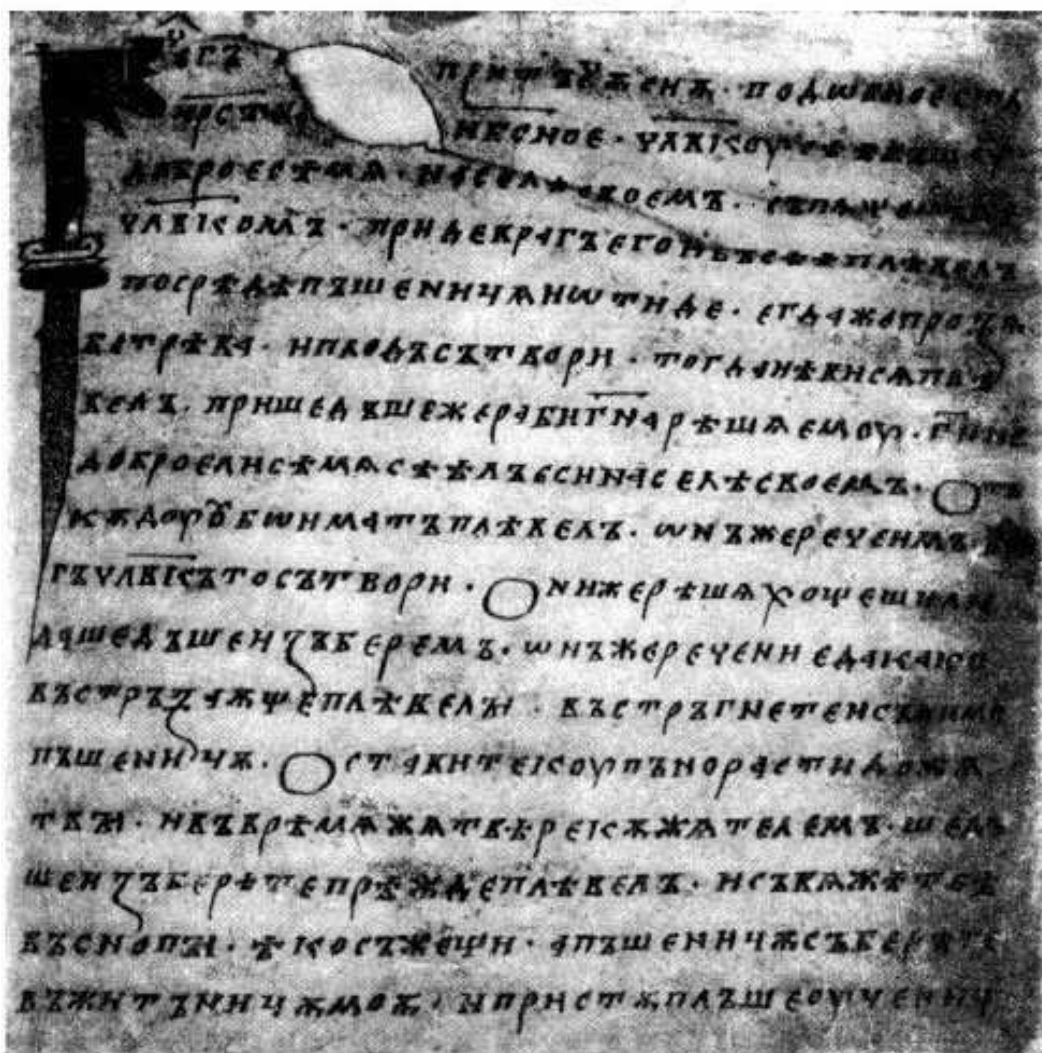 притъчѫ сиѭ · подобно естъ
нбсное · члвкоу сѣвъшоу
доброе сѣмѧ · на селѣ своемъ · съпѧщемъже
члвкомъ · приде врагъ его и въсѣѣ плѣвелъ
посрѣдѣ пъшеничѧ и ѡтиде · егдаже прозѧ
бе трѣва · и плодъ сътвори · тогда ꙗви сѧ плѣ
велъ. пришедъше же раби г҃на рѣшѧ емоу · г҃и не
доброе ли сѣмѧ сѣѣлъ еси на селѣ своемъ · Отъ
кѫдоу оубѡ иматъ плѣвелъ. ѡнъже рече имъ · вра
гъ члвкъ то сътвори · Они же рѣшѧ хощеши ли
да шедъше изъберемъ. ѡнъже рече ни еда како
въстръзаѭще плѣвелꙑ · въстръгнете и съ ними
пъшеничѫ. Оставите коупъно расти до жѧ
твꙑ · и въ врѣмѧ жѧтвѣ рекѫ жѧтелемъ · шедъ
ше изъберѣте прѣжде плѣвелъ · и съвѧжѣте ѣ
въ снопꙑ · ѣко съжещи · а пъшеничѫ съберѣте
въ житъничѫ моѭ · и пристѫплъше оученич